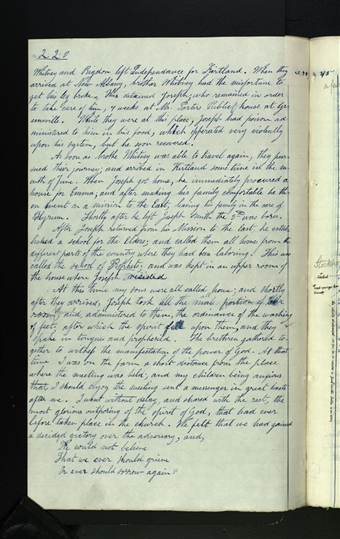 220
Whitney and Rigdon left Independance for Kirtland. When they
arrived at New Albany, brother Whitney had the misfortune to
get his leg broken. This detained Joseph, who remained in order
to take care of him, 4 weeks at Mr. Porters Public house at Gre
enville. While they were at this place, Joseph had poison ad
ministered to him in his food, which opperated very violently
upon his system, but he soon recovered.
As soon as brother Whitney was able to travel again, they pur
sued their journey; and arived in Kirtland some time in the mo
nth of June. When Joseph got home, he immediately procured a
house for Emma, and after making his family comfortable he th
en went on a mission to the East, leaving his family in the care of
Hyrum. Shortly after he left Joseph Smith the 3rd was born.
After Joseph returned from his Mission to the East, he estab
lished a school for the Elders; and called them all home from the
different parts of the country where they had been laboring. This was
called the school of Prophets; and was kept in an upper room of
the house where Joseph resided
At this time my sons were all called home; and shortly
after they arrived, Joseph took all the male portion of
and administered to them, the ordinance of the washing
of feet; after which the spirit fell upon them, and they
spake in tongues and prophesied. The brethren gathered to-
gether to witness the manifestation of the power of God. At that
time I was on the farm a short distance from the place
where the meeting was held; and my children being anxious
that I should enjoy the meeting sent a messenger in great haste
after me. I went without delay, and shared with the rest, the
most glorious outpouring of the spirit of God, that had ever
before taken place in the church. We felt that we had gained
a decided victory over the adversary, and,
We could not believe
That we ever should grieve
Or ever should sorrow again"